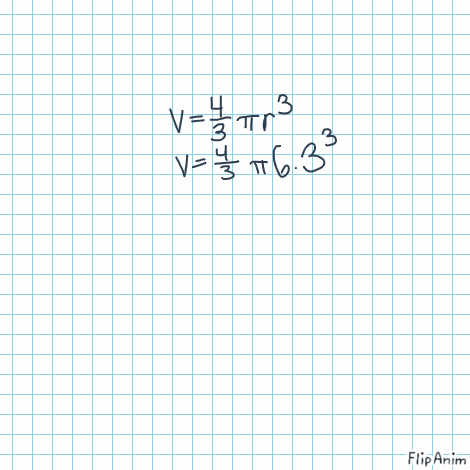 V = 4/3 πr³
V = 4/3 π6.3³
FlipAnim